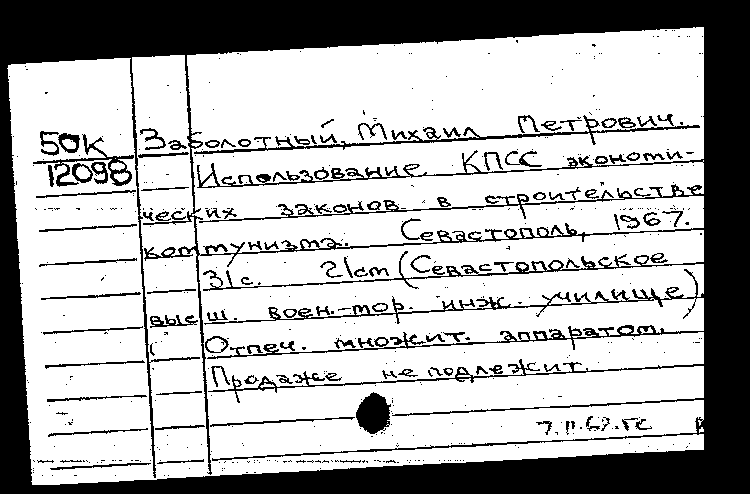 50К Заболотный, Михаил Петрович.
12098 Использование КПСС экономи-
ческих законов в строительстве
коммунизма. Севастополь, 1967.
31с. 21см (Севастопольское
высш. воен.-мор. инж. училище).
Отпеч. множит. аппаратом.
Продаже не подлежит.